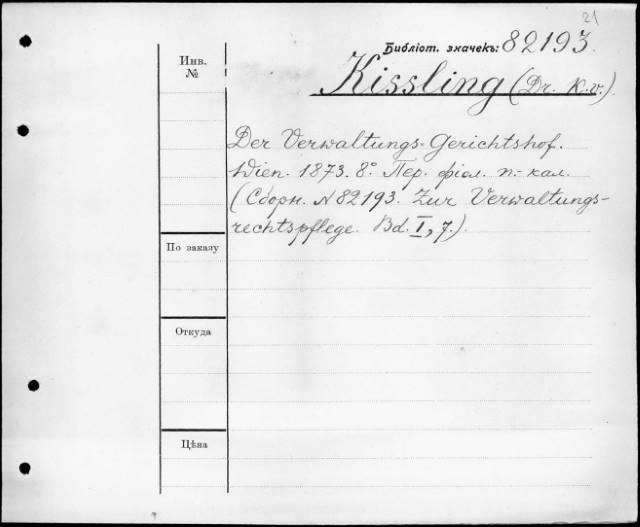 21
Библіот. значекъ: 82193.
Инв.
№
Kissling (Dr. K.v.)
Der Verwaltungs-Gerichtshof.
Wien. 1873. 8º. Пер. фіол. п.-кал.
(Сборн. № 82193. Zur Verwaltungs-
rechtspflege. Bd. I, 7.)
По заказу
Откуда
Цѣна